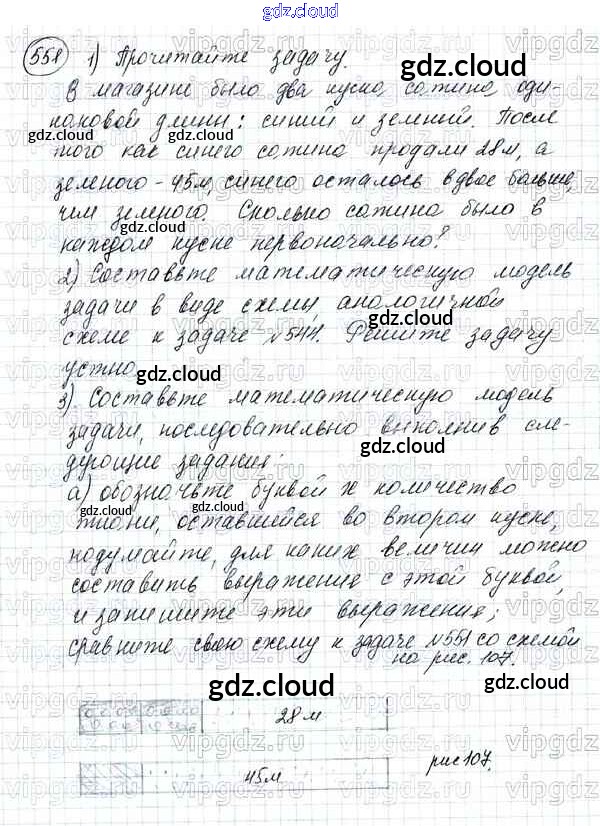 gdz.cloud
558 1) Прочитайте задачу.
gdz.cloud
В магазине было два куска сатина оди-
наковой длины: синий и зеленый. После
gdz.cloud gdz.cloud
того как синего сатина продали 28м, а
зеленого - 45м, синего осталось вдвое больше,
чем зеленого. Сколько сатина было в
gdz.cloud gdz.cloud
каждом куске первоначально?
2) Составьте математическую модель
задачи в виде схемы, аналогичной
схеме к задаче №544. Решите задачу
gdz.cloud
устно.
gdz.cloud
3) Составьте математическую модель
задачи, последовательно выполнив сле-
gdz.cloud
дующие задания:
gdz.cloud
а) обозначьте буквой x количество
ткани, оставшейся во втором куске,
gdz.cloud gdz.cloud
подумайте, для каких величин можно
составить выражения с этой буквой,
и запишите эти выражения;
сравните свою схему к задаче №551 со схемой
на рис. 107.
gdz.cloud gdz.cloud
28м
45м
рис 107.